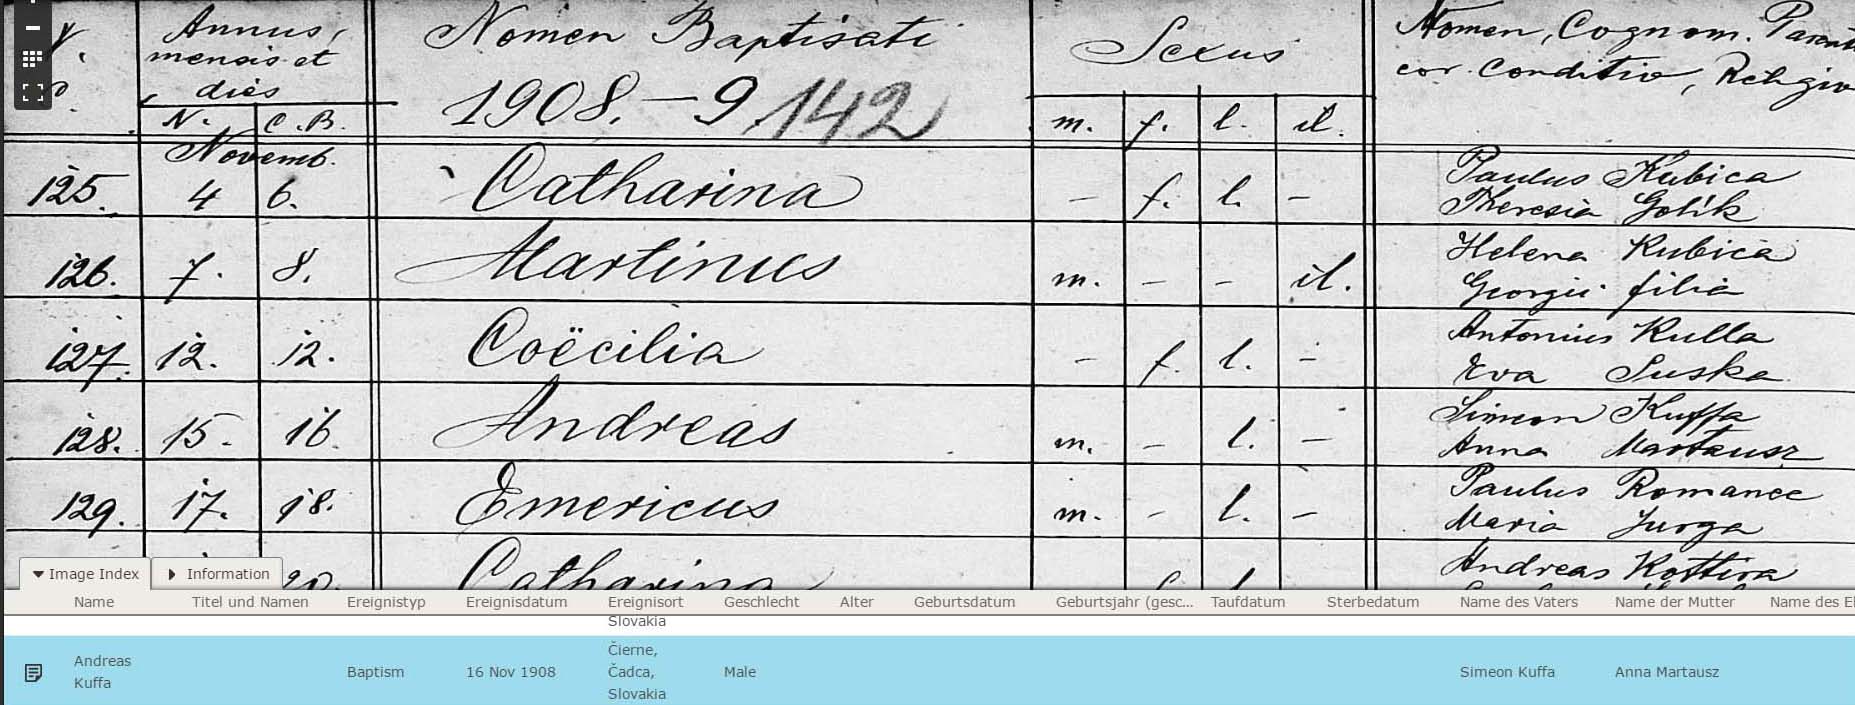 Annus,
mensis et
dies
N. C.B.
Nomen Baptisati
1908.-9. 142
Sexus
m. f. l. il.
Nomen, Cognom. Parent
cor. Conditio, Religio
Novemb.
125. 4 6. Catharina - f. l. - Paulus Kubica
Theresia Golik
126. 7. 8. Martinus m. - - il. Helena Kubica
Georgii filia
127. 12. 12. Coëcilia - f. l. - Antonius Kulla
Eva Suska
128. 15. 16. Andreas m. - l. - Simeon Kuffa
Anna Martausz
129. 17. 18. Emericus m. - l. - Paulus Romanec
Maria Jurga
20. Catharina f. l. Andreas
Image Index Information
Name Titel und Namen Ereignistyp Ereignisdatum Ereignisort Geschlecht Alter Geburtsdatum Geburtsjahr (gesc... Taufdatum Sterbedatum Name des Vaters Name der Mutter Name des E
Slovakia
Andreas
Kuffa
Baptism
16 Nov 1908
Čierne,
Čadca,
Slovakia
Male
Simeon Kuffa
Anna Martausz